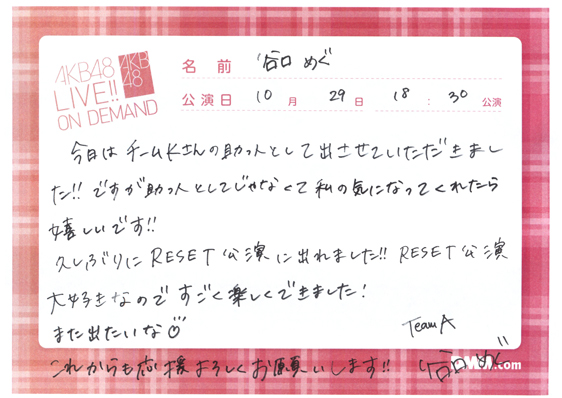 AKB48
LIVE!!
ON DEMAND
AKB
48
名 前 谷口 めぐ
公演日 10 月 29 日 18 : 30 公演
今日は チームKさんの助っ人として出させていただきまし
た!! ですが助っ人としてじゃなくて私の気になってくれたら
嬉しいです!!
久しぶりに RESET公演に出れました!! RESET公演
大好きなので すごく楽しくできました!
また出たいな
Team A
これからも応援よろしくお願いします!! 谷口めぐ
.com